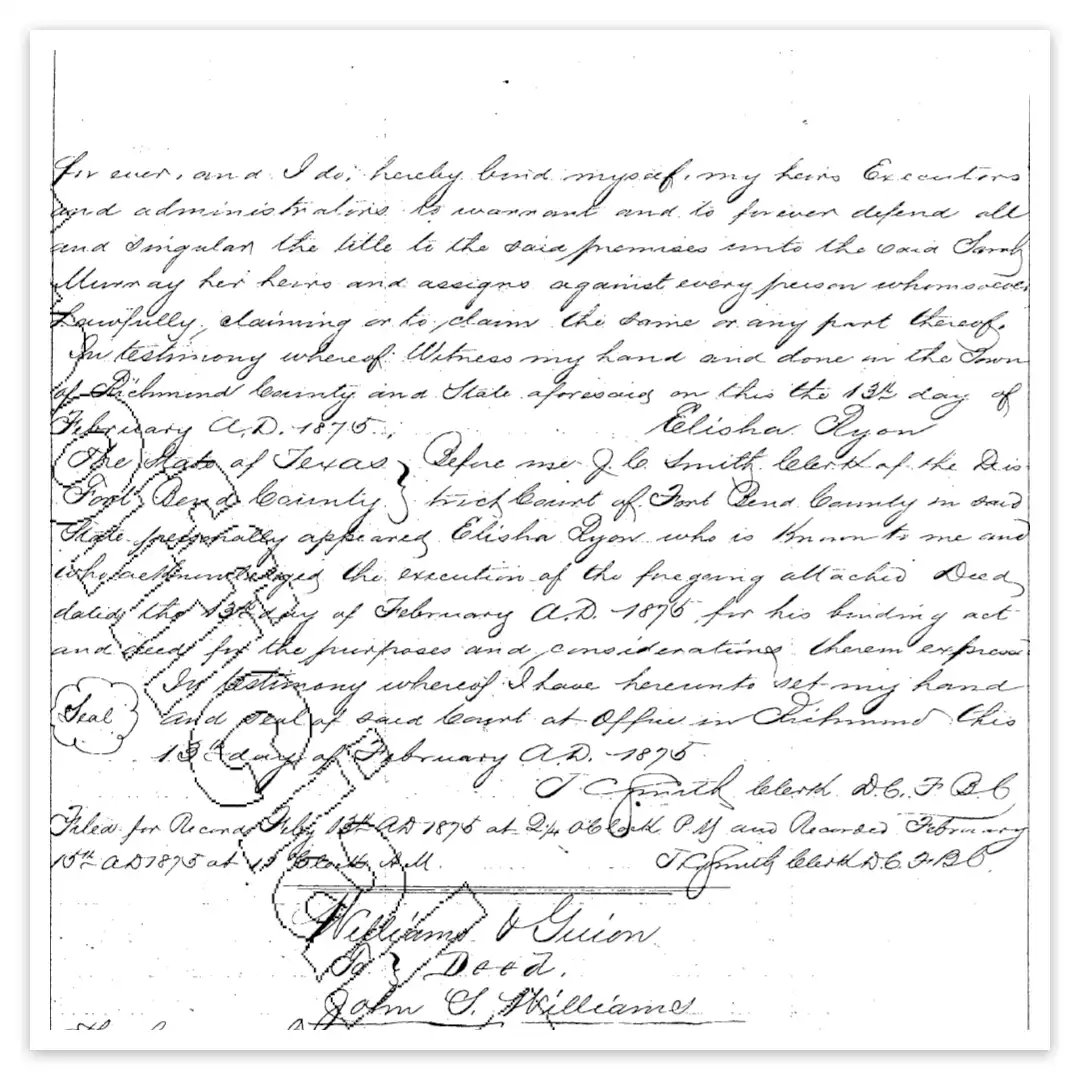 for ever, and I do, hereby bind myself, my heirs Executors
and administrators to warrant and to forever defend all
and singular the title to the said premises unto the said Sarah
Murray her heirs and assigns against every person whomsoever
Lawfully, claiming or to claim the same or any part thereof.
In testimony whereof Witness my hand and done in the Town
of Richmond County and State aforesaid on this the 13th day of
February A.D. 1875.
Elisha Ryon
The State of Texas } Before me J. C. Smith Clerk of the Dis-
Fort Bend County } trict Court of Fort Bend County in said
State personally appeared Elisha Ryon who is Known to me and
who acknowledged the execution of the foregoing attached Deed
dated the 13th day of February A.D. 1875 for his binding act
and deed for the purposes and considerations therein express
In testimony whereof I have hereunto set my hand
Seal and seal of said Court at Office in Richmond this
13th day of February A.D. 1875
J C Smith Clerk D.C. F B C
Filed for Record Feby 13th AD 1875 at 2¼ o'Clock P M and Recorded February
15th A.D 1875 at Clock A M.
J C Smith Clerk D.C. F. B C.
Williams & Guion
To } Deed.
John S. Williams